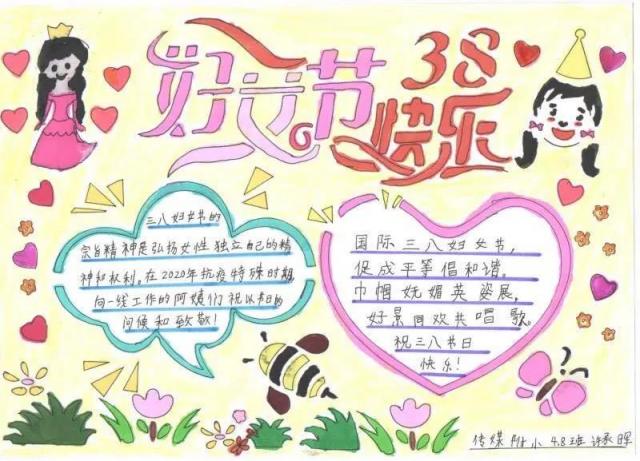 妇女节 38
快乐
三八妇女节的
宗旨精神是弘扬女性独立自己的精
神和权利。在2020年抗疫特殊时期
向一线工作的阿姨们祝以节日的
问候和致敬!
国际三八妇女节,
促成平等倡和谐。
巾帼妩媚英姿展,
好景同欢共唱歌。
祝三八节日
快乐!
传媒附小 4.8班